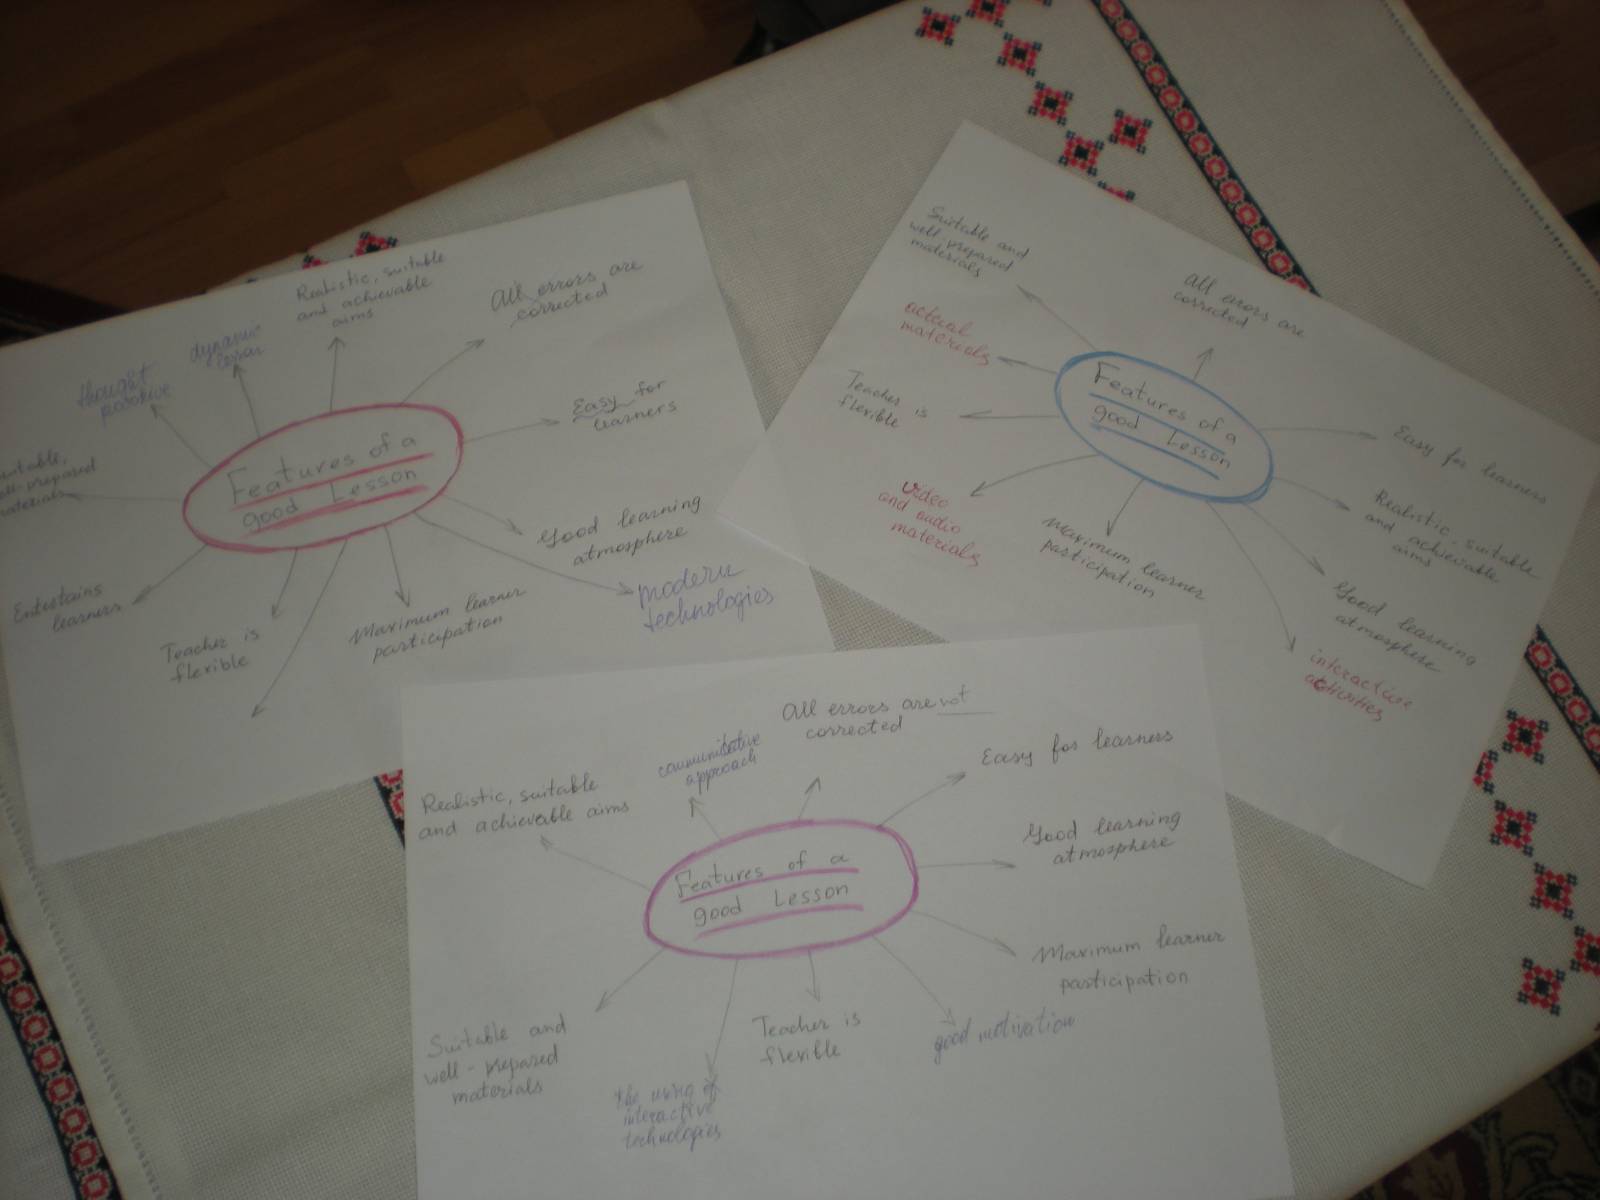 Realistic, suitable
and achievable
aims
All errors are
corrected
dynamic
lesson
thought
Easy for
learners
Features of a
good Lesson
well-prepared
materials
Good learning
atmosphere
modern
technologies
Entertains
learners
Teacher is
flexible
Maximum learner
participation
Suitable and
well-prepared
materials
All erors are
corrected
acteral
materials
Teacher is
flexible
Features of a
good Lesson
Easy for learners
Realistic, suitable
and achievable
aims
video
and audio
materials
Maximum learner
participation
Good learning
atmosphere
interactive
activities
All errors are not
corrected
approach
Easy for learners
Realistic, suitable
and achievable aims
Good learning
atmosphere
Features of a
good Lesson
Maximum learner
participation
Suitable and
well-prepared
materials
Teacher is
flexible
good motivation
the using of
interactive
technologies